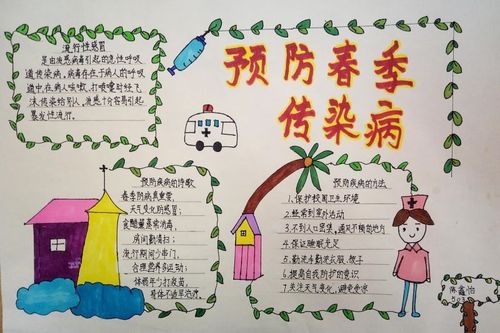 预防春季
传染病
流行性感冒
是由流感病毒引起的急性呼吸
道传染病，病毒存在于病人的呼吸
道中，在病人咳嗽，打喷嚏时经飞
沫传染给别人，流感十分容易引起
暴发性流行。
预防疾病的诗歌
春季防病真重要，
天气变化防感冒；
食醋薰蒸病消毒，
房间勤清扫；
流行期间少串门，
合理营养多运动；
体弱年少打疫苗，
身体不适早治疗。
预防疾病的方法
1.保护校园卫生环境
2.经常到室外活动
3.不到人口密集，通风不畅的地方
4.保证睡眠充足
5.勤洗手勤洗衣服、被子
6.提高自我防护的意识
7.关注天气变化，避免受凉
503